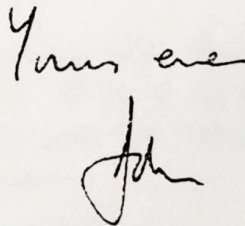 Yours ever
John